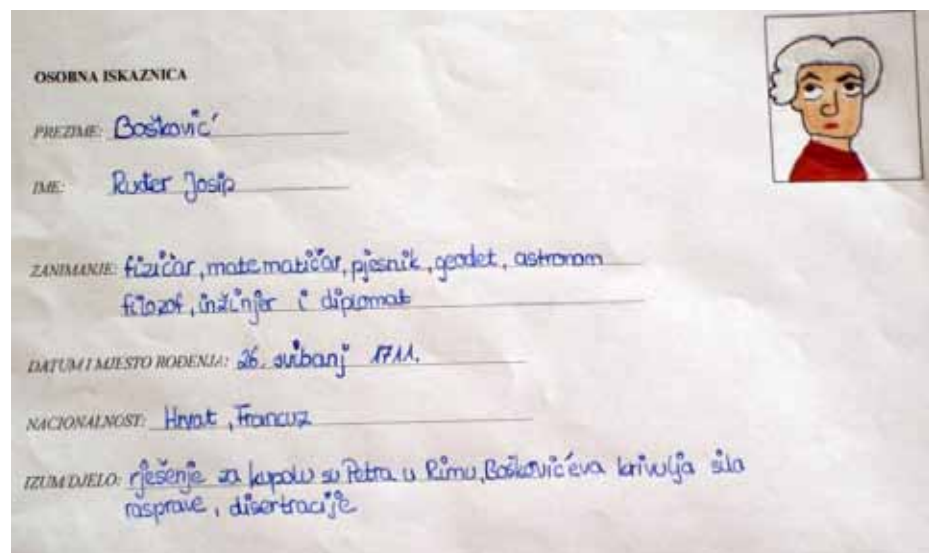 OSOBNA ISKAZNICA
PREZIME: Bošković
IME: Ruđer Josip
ZANIMANJE: fizičar, matematičar, pjesnik, geodet, astronom
filozof, inžinjer i diplomat
DATUM I MJESTO ROĐENJA: 26. svibanj 1711.
NACIONALNOST: Hrvat, Francuz
IZUM/DJELO: rješenje za kupolu sv Petra u Rimu, Boškovićeva krivulja sila
rasprave, disertracije